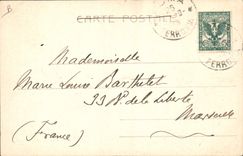 CARTE POSTALE
Mademoiselle
Marie Louise Barthelet
33 de la Liberté
Marseille
(France)